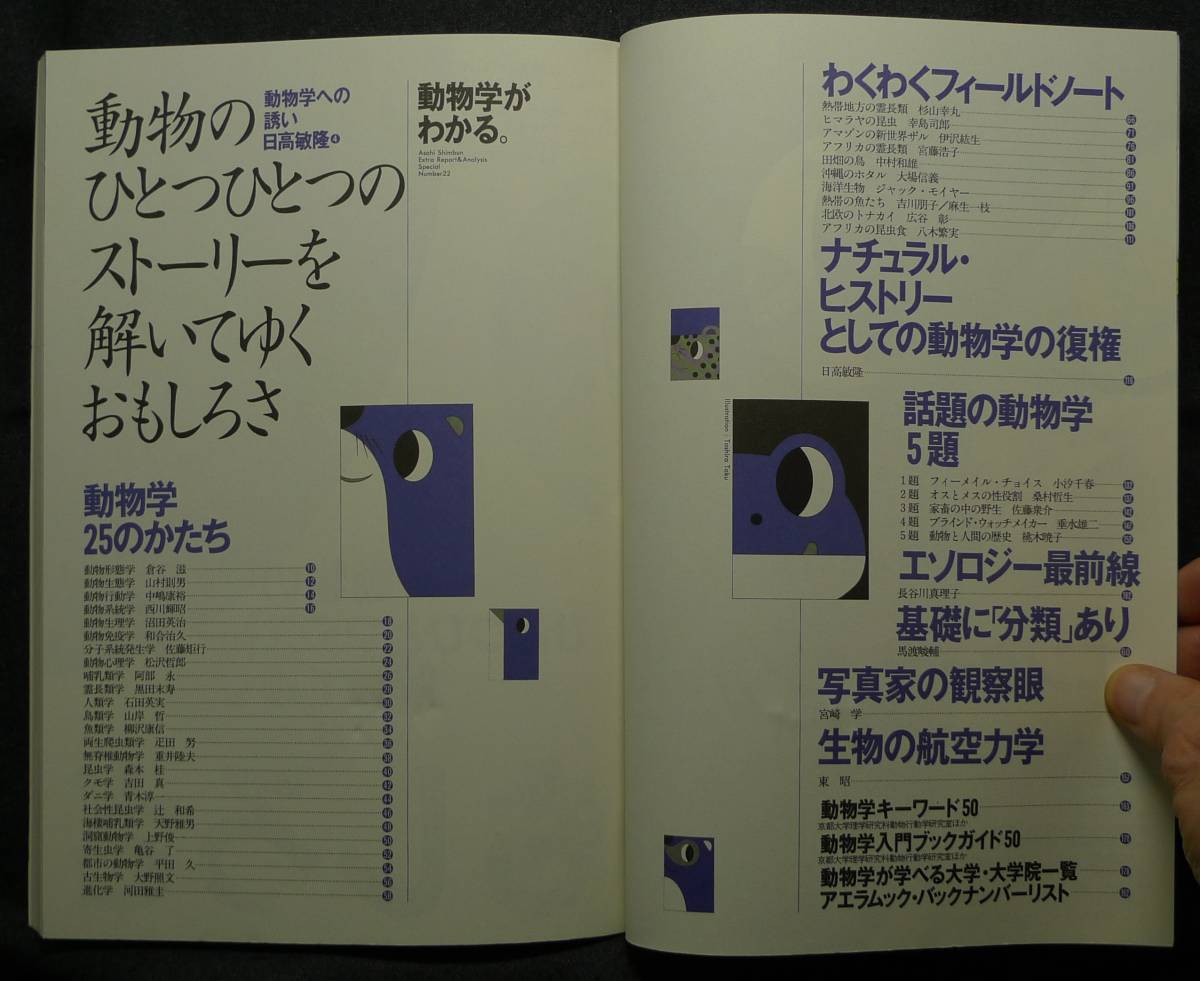 動物の
ひとつひとつの
ストーリーを
解いてゆく
おもしろさ
動物学への
誘い
日高敏隆❹
動物学が
わかる。
Asahi Shimbun
Extra Report&Analysis
Special
Number22
動物学
25のかたち
動物形態学 倉谷 滋 10
動物生態学 山村則男 12
動物行動学 中嶋康裕 14
動物系統学 西川輝昭 16
動物生理学 沼田英治 18
動物免疫学 和合治久 20
分子系統発生学 佐藤矩行 22
動物心理学 松沢哲郎 24
哺乳類学 阿部 永 26
霊長類学 黒田末寿 28
人類学 石田英実 30
鳥類学 山岸 哲 32
魚類学 柳沢康信 34
両生爬虫類学 疋田 努 36
無脊椎動物学 重井陸夫 38
昆虫学 森本 桂 40
クモ学 吉田 真 42
ダニ学 青木淳一 44
社会性昆虫学 辻 和希 46
海棲哺乳類学 天野雅男 48
洞窟動物学 上野俊一 50
寄生虫学 亀谷 了 52
都市の動物学 平田 久 54
古生物学 大野照文 56
進化学 河田雅圭 58
わくわくフィールドノート
熱帯地方の霊長類 杉山幸丸 66
ヒマラヤの昆虫 幸島司郎 71
アマゾンの新世界ザル 伊沢紘生 76
アフリカの霊長類 宮藤浩子 81
田畑の鳥 中村和雄 86
沖縄のホタル 大場信義 91
海洋生物 ジャック・モイヤー 96
熱帯の魚たち 吉川朋子/麻生一枝 101
北欧のトナカイ 広谷 彰 106
アフリカの昆虫食 八木繁実 111
ナチュラル・
ヒストリー
としての動物学の復権
日高敏隆
Illustration : Toshiro Taku
話題の動物学
5題
1題 フィーメイル・チョイス 小汐千春
2題 オスとメスの性役割 桑村哲生
3題 家畜の中の野生 佐藤衆介
4題 ブラインド・ウォッチメイカー 垂水雄二
5題 動物と人間の歴史 桃木暁子
エソロジー最前線
長谷川真理子
基礎に「分類」あり
馬渡峻輔 60
写真家の観察眼
宮崎 学
生物の航空力学
東 昭
動物学キーワード50
京都大学理学研究科動物行動学研究室ほか
動物学入門ブックガイド50
京都大学理学研究科動物行動学研究室ほか
動物学が学べる大学・大学院一覧
アエラムック・バックナンバーリスト